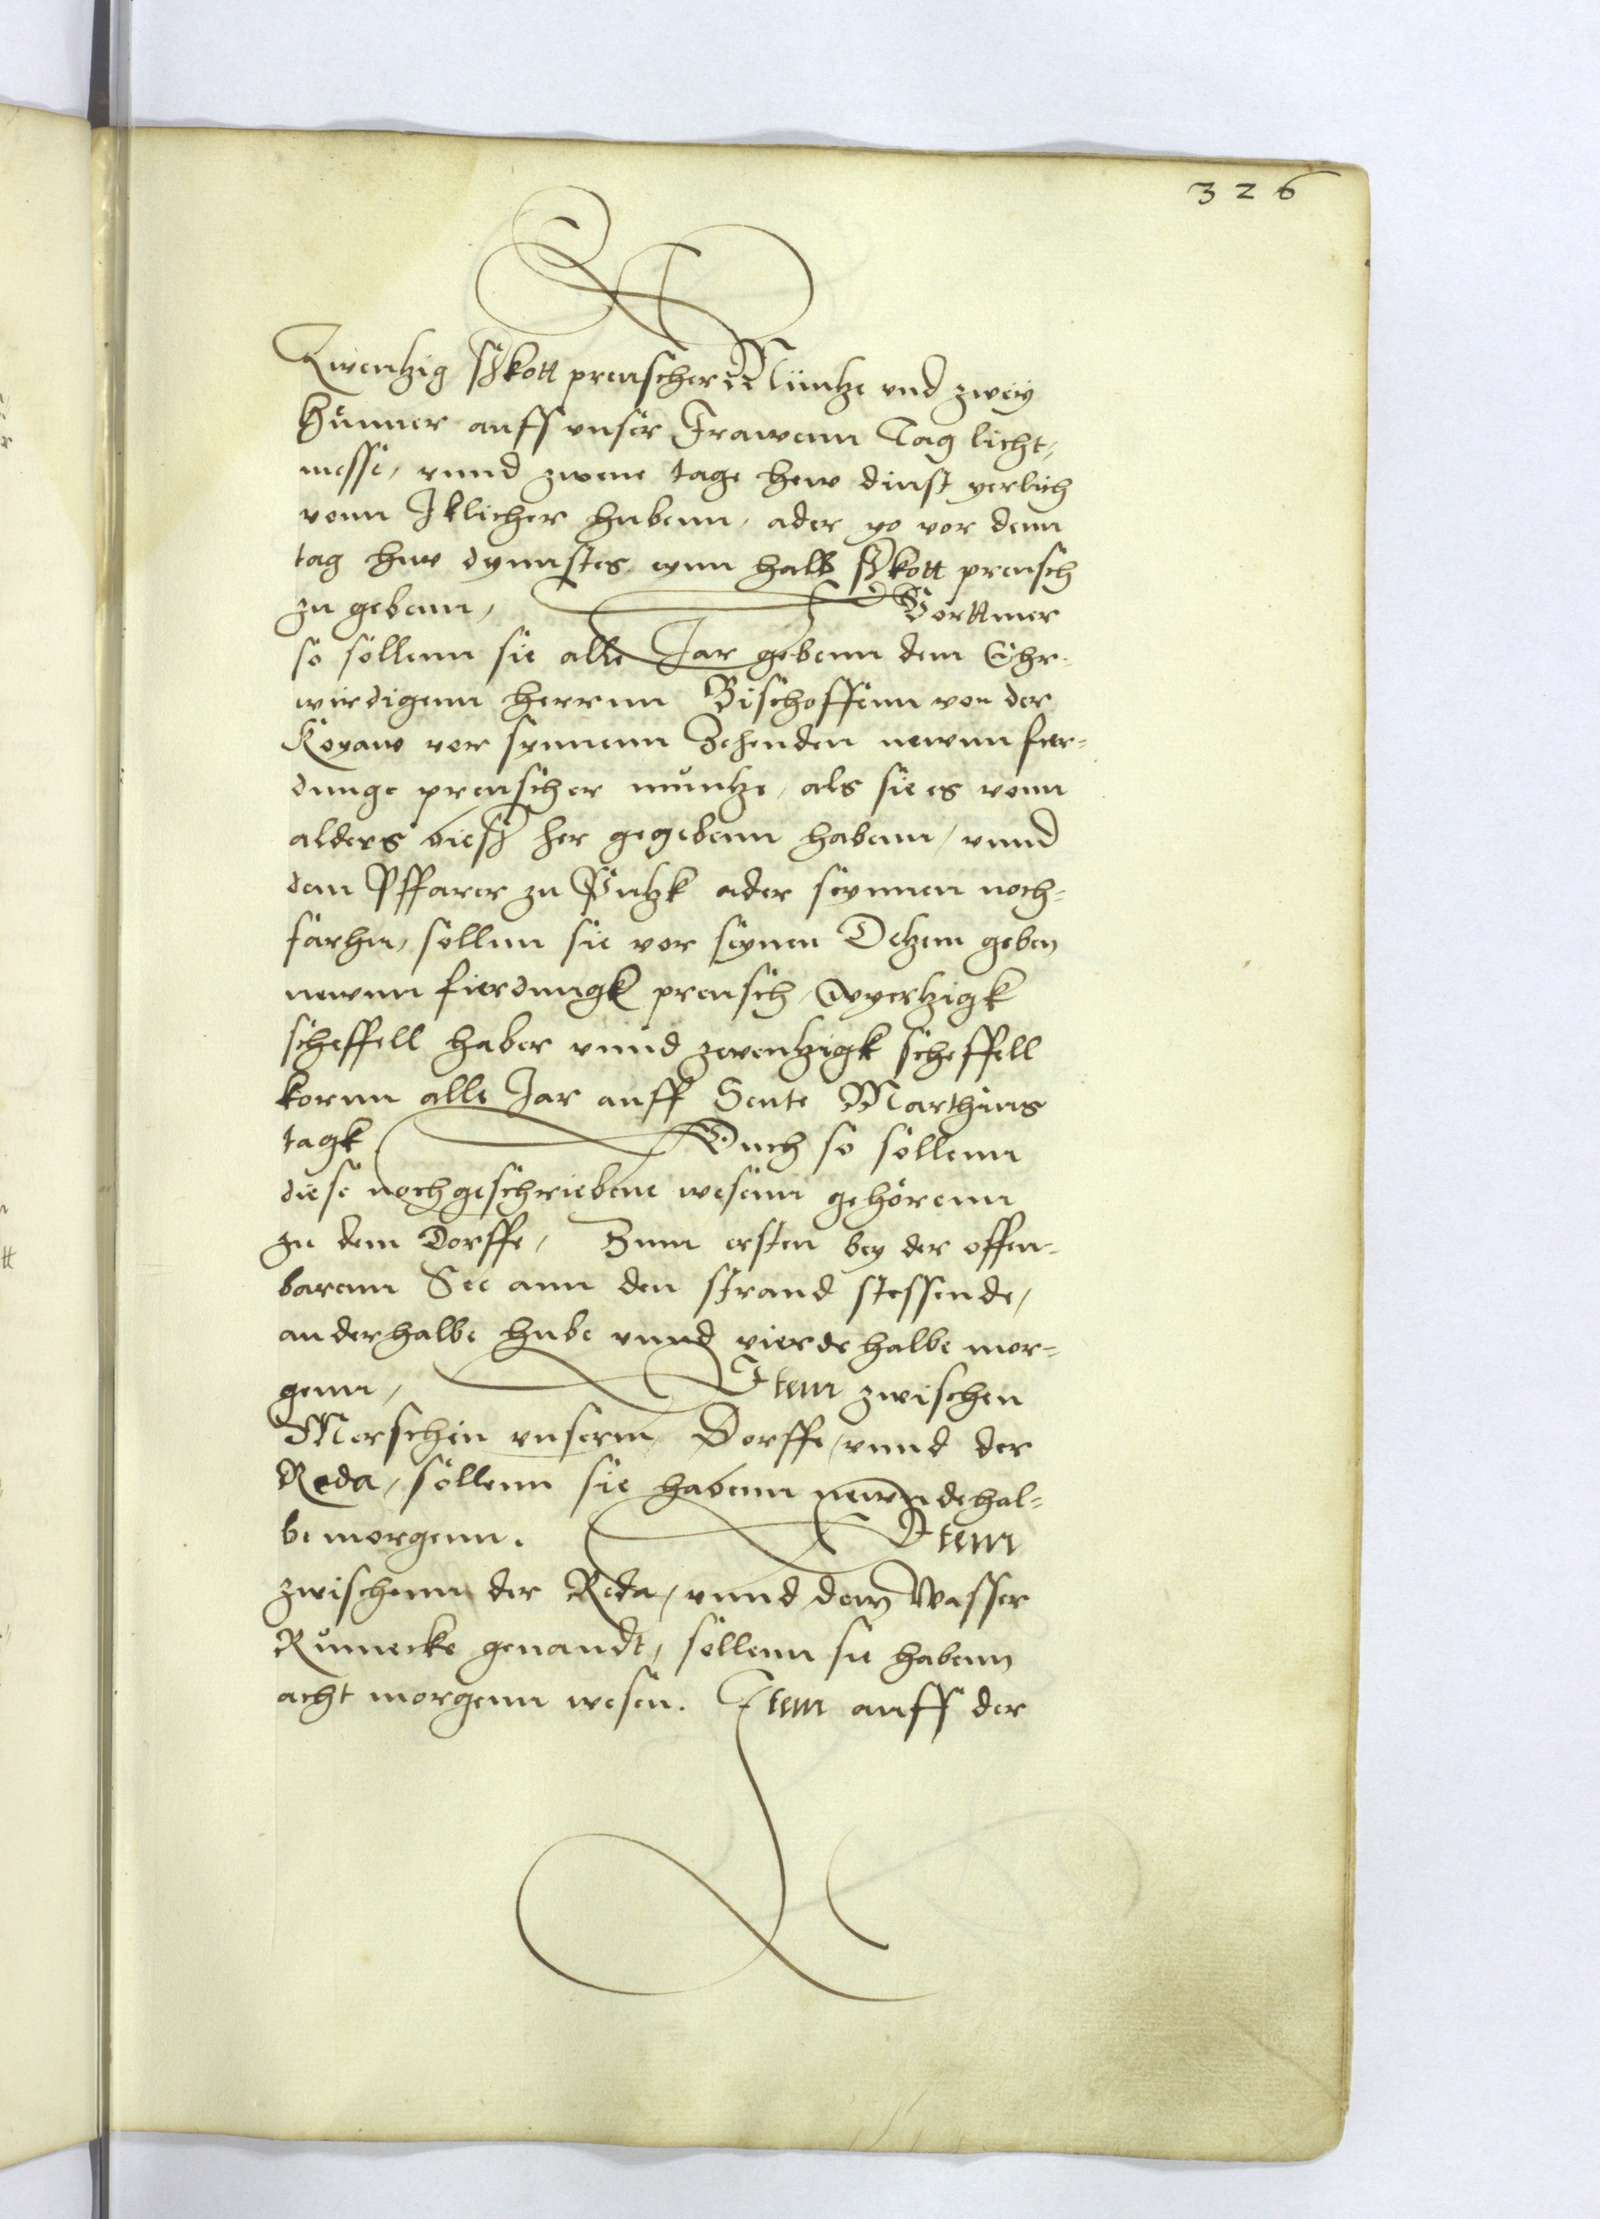 326
Zwentzig ßkott preuscher Müntze vnd zwey
Hünner auff vnser Frawenn Tag licht,
messe, vnnd zwene tage hew dinst yerlich
vonn Iklicher hubenn, ader yo vor denn
tag hew dynnstes eynn halb ßkott preusch
zu gebenn, Vorttmer
so sollenn sie alle Jar gebenn dem Ehr-
wirdigenn herrnn Bischoffenn von der
Koyaw vor synnenn Zehenden newnn fier-
dunge preuscher müntze, als sie es vonn
alders bieß her gegebenn habenn, vnnd
dem Pffarer zu Putzk ader seynnen noch-
farhen, sollnn sie vor seynen Detzem geben
newnn fierdungk preusch, Vyertzigk
scheffell haber vnnd zwentzigk scheffell
kornn alle Jar auff Sente Marthins
tagk Auch so sollenn
diese nochgeschriebene wesenn gehörenn
zu dem Dorffe, Zum ersten bey der offen-
barenn See ann den strand stossende,
anderhalbe hube vnnd vierdehalbe mor-
genn, Item zwischen
Merschin vnserm Dorffe, vnnd der
Reda, sollenn sie habenn newndehal-
be morgenn. Item
zwischenn der Reda, vnnd dem Wasser
Rumecke genandt, sollenn sie habenn
acht morgenn wesen. Item auff der